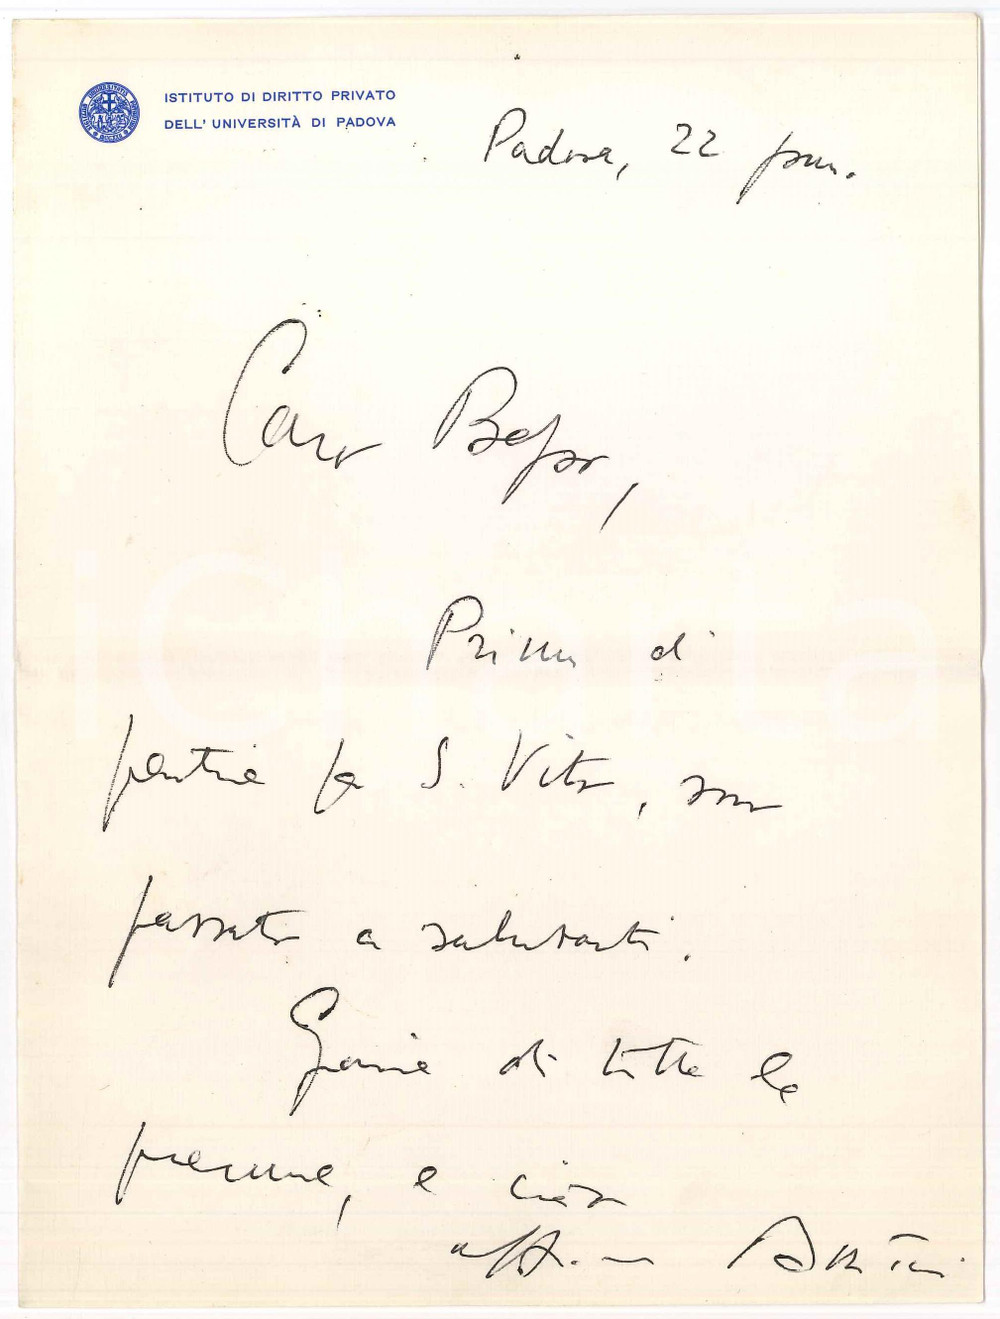 ISTITUTO DI DIRITTO PRIVATO
DELL' UNIVERSITÀ DI PADOVA
Padova, 22
Caro Beppo,
Prima di
partire per S. Vito, son
passato a salutarti.
Grazie di tutte le
premure, e ciao
aff.mo